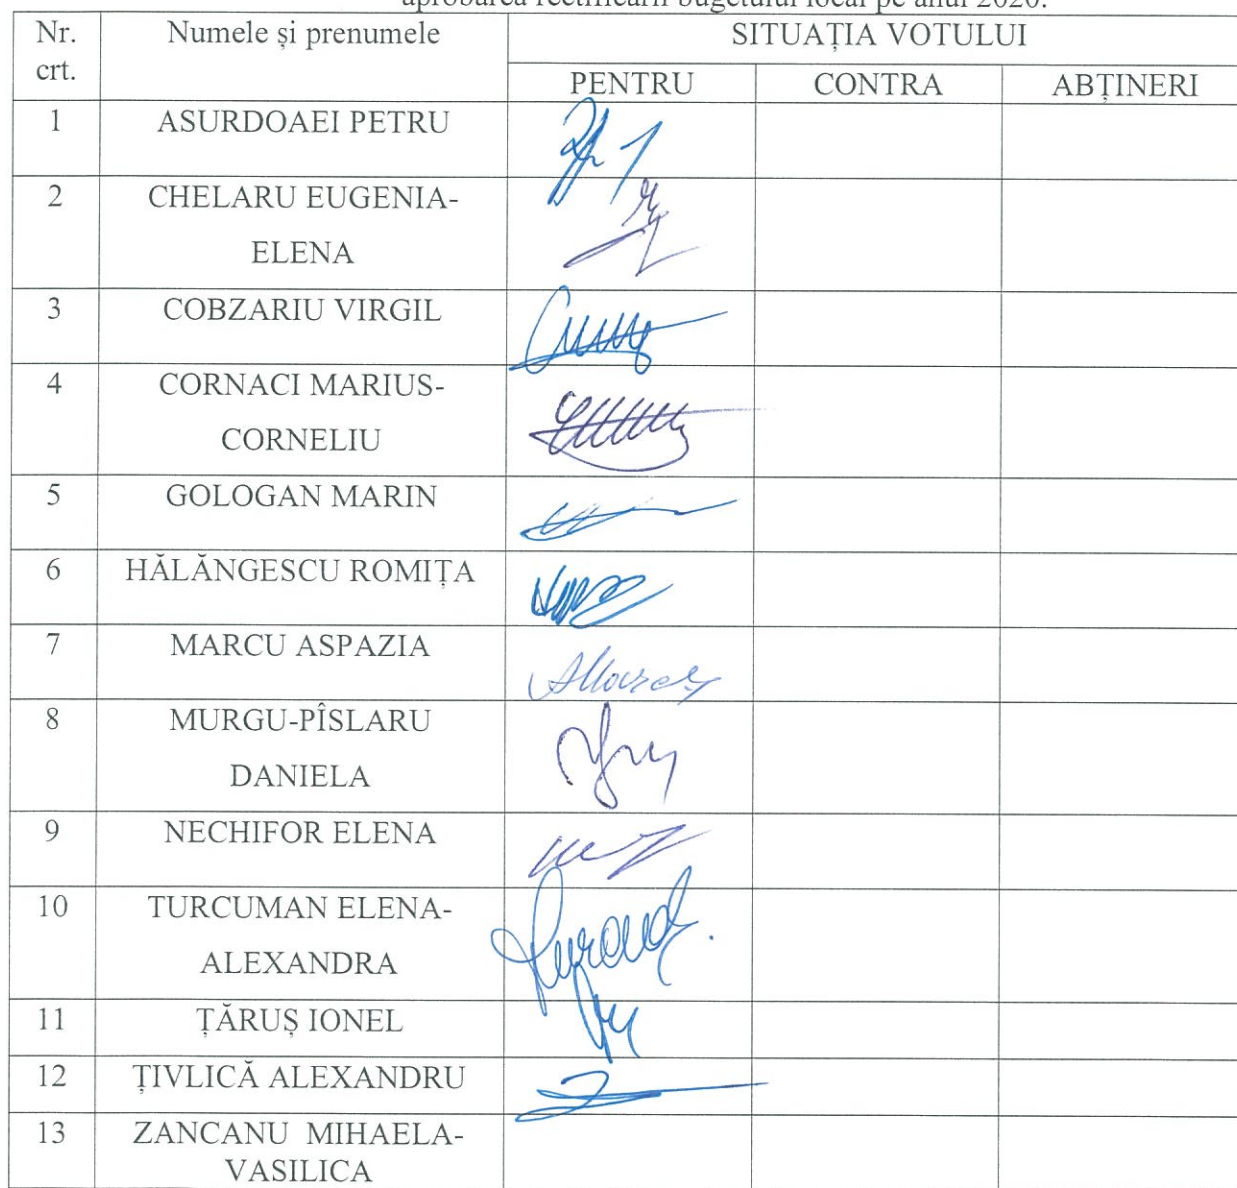 aprobarea rectificării bugetului local pe anul 2020.
Nr. crt. Numele și prenumele SITUAȚIA VOTULUI
PENTRU CONTRA ABȚINERI
1 ASURDOAEI PETRU
2 CHELARU EUGENIA-
ELENA
3 COBZARIU VIRGIL
4 CORNACI MARIUS-
CORNELIU
5 GOLOGAN MARIN
6 HĂLĂNGESCU ROMIȚA
7 MARCU ASPAZIA
8 MURGU-PÎSLARU
DANIELA
9 NECHIFOR ELENA
10 TURCUMAN ELENA-
ALEXANDRA
11 ȚĂRUȘ IONEL
12 ȚIVLICĂ ALEXANDRU
13 ZANCANU MIHAELA-
VASILICA